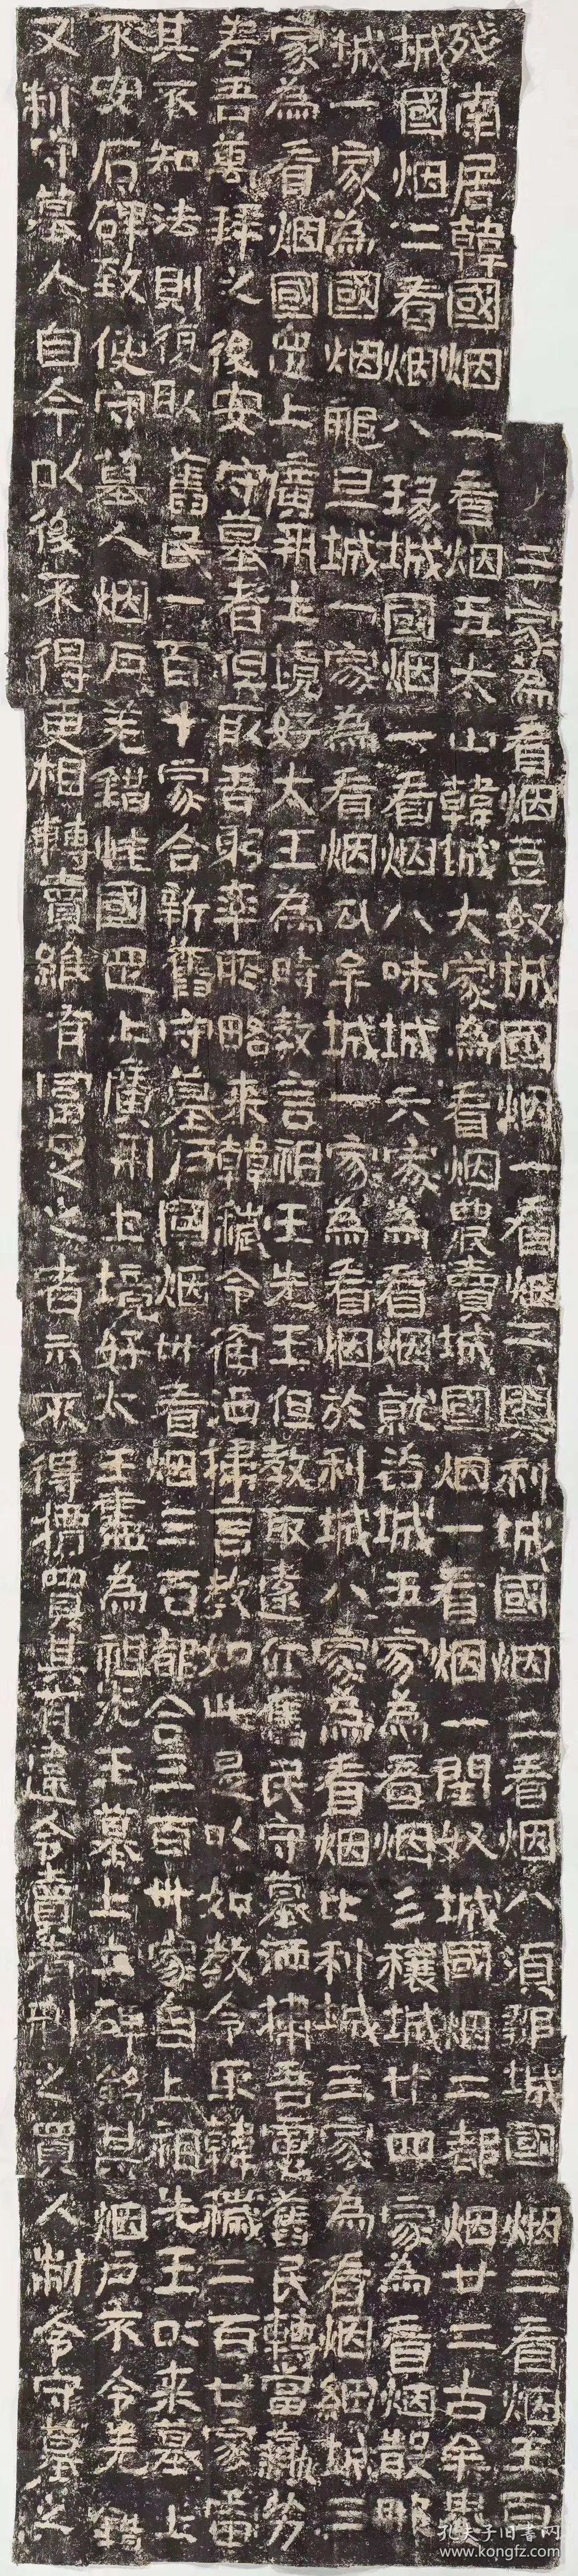 三家為看烟豆奴城國烟一看烟二奧利城國烟二看烟八須鄒城國烟二看烟五百
殘南居韓國烟一看烟五太山韓城六家為看烟農賣城國烟一看烟一閏奴城國烟二都烟廿二古牟婁
城國烟二看烟八瑑城國烟一看烟八味城六家為看烟就咨城五家為看烟彡穰城廿四家為看烟散那
城一家為國烟旦城一家為看烟牟城一家為看烟於利城八家為看烟比利城三家為看烟細城三
家為看烟國罡上廣開土境好太王為時教言祖王先王但教取遠近舊民守墓洒掃吾慮舊民轉當羸劣
若吾萬年之後安守墓者但取吾躬率所略來韓穢令備洒掃言教如此是以如教令取韓穢二百廿家慮
其不知法則復取舊民一百十家合新舊守墓户國烟卅看烟三百都合三百卅家自上祖先王以來墓上
不安石碑致使守墓人烟户羌錯唯國罡上廣開土境好太王盡為祖先王墓上立碑銘其烟户不令羌錯
又制守墓人自今以後不得更相轉賣雖有富足之者亦不得擅買其有違令賣者刑之買人制令守墓之
孔夫子旧书网
www.kongfz.com